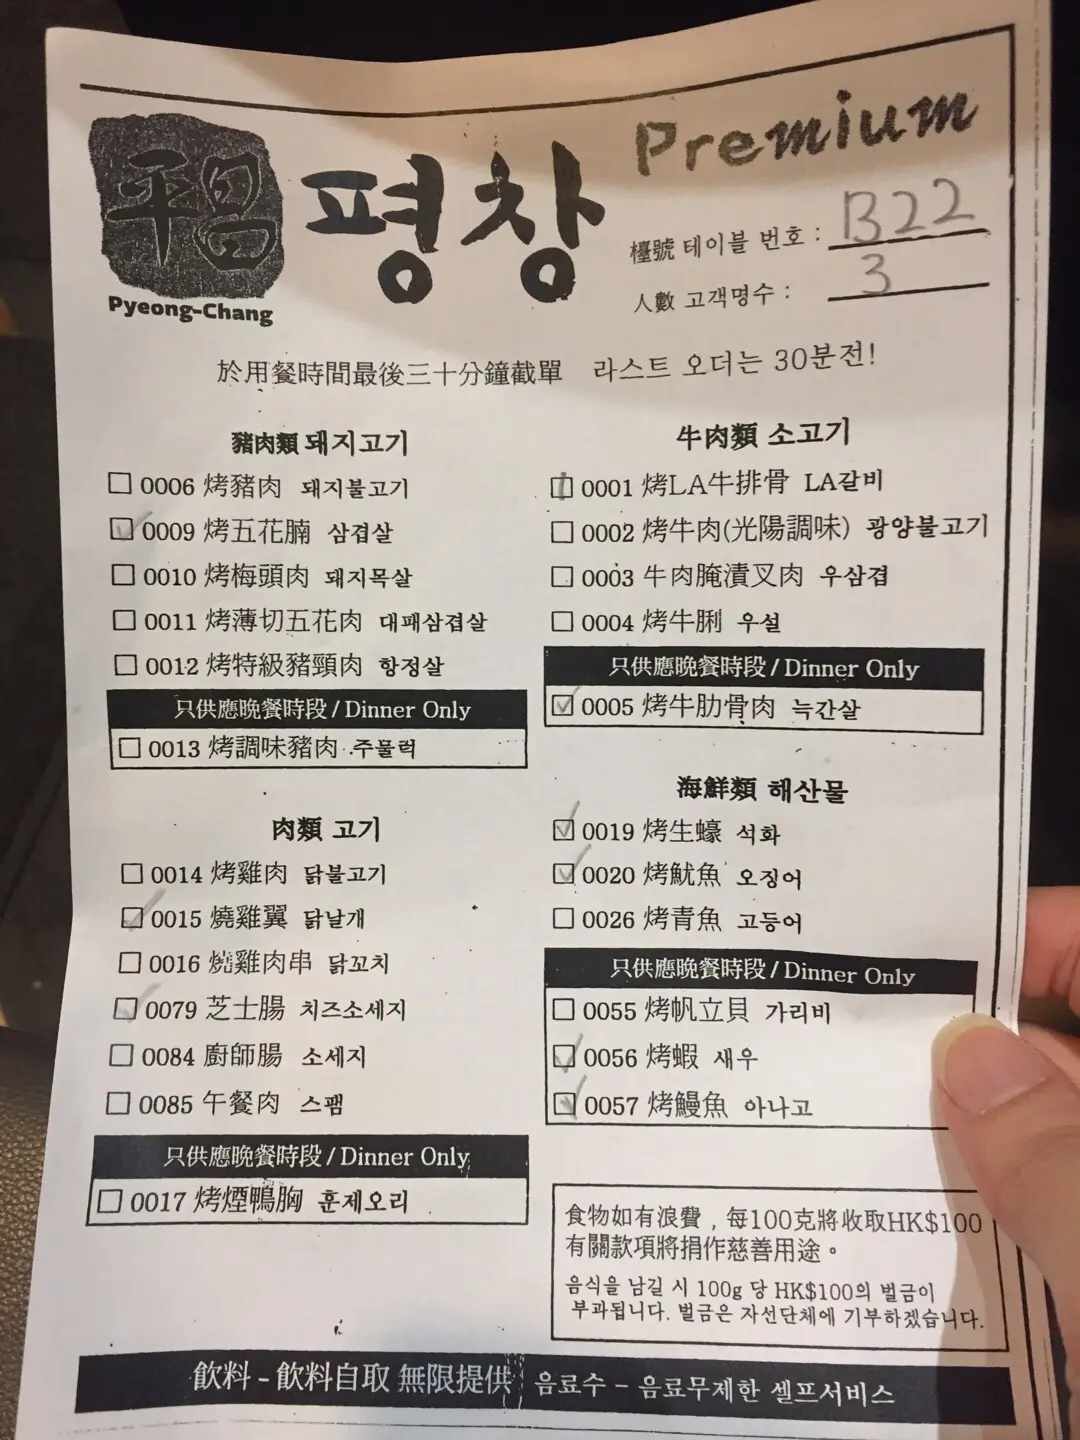 平昌
Pyeong-Chang
평창
Premium
檯號 테이블 번호 : B22
人數 고객명수 : 3
於用餐時間最後三十分鐘截單 라스트 오더는 30분전!
豬肉類 돼지고기
0006 烤豬肉 돼지불고기
0009 烤五花腩 삼겹살
0010 烤梅頭肉 돼지목살
0011 烤薄切五花肉 대패삼겹살
0012 烤特級豬頸肉 항정살
只供應晚餐時段 / Dinner Only
0013 烤調味豬肉 주물럭
肉類 고기
0014 烤雞肉 닭불고기
0015 燒雞翼 닭날개
0016 燒雞肉串 닭꼬치
0079 芝士腸 치즈소세지
0084 廚師腸 소세지
0085 午餐肉 스팸
只供應晚餐時段 / Dinner Only
0017 烤煙鴨胸 훈제오리
牛肉類 소고기
0001 烤LA牛排骨 LA갈비
0002 烤牛肉(光陽調味) 광양불고기
0003 牛肉腌漬叉肉 우삼겹
0004 烤牛脷 우설
只供應晚餐時段 / Dinner Only
0005 烤牛肋骨肉 늑간살
海鮮類 해산물
0019 烤生蠔 석화
0020 烤魷魚 오징어
0026 烤青魚 고등어
只供應晚餐時段 / Dinner Only
0055 烤帆立貝 가리비
0056 烤蝦 새우
0057 烤鰻魚 아나고
食物如有浪費，每100克將收取HK$100
有關款項將捐作慈善用途。
음식을 남길 시 100g 당 HK$100의 벌금이
부과됩니다. 벌금은 자선단체에 기부하겠습니다.
飲料 - 飲料自取 無限提供 음료수 - 음료무제한 셀프서비스